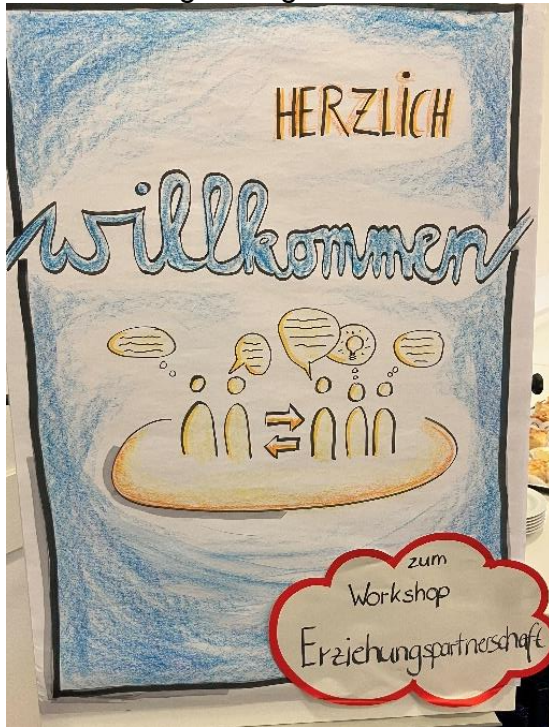 HERZLiCH
willkommen
zum
Workshop
Erziehungspartnerschaft